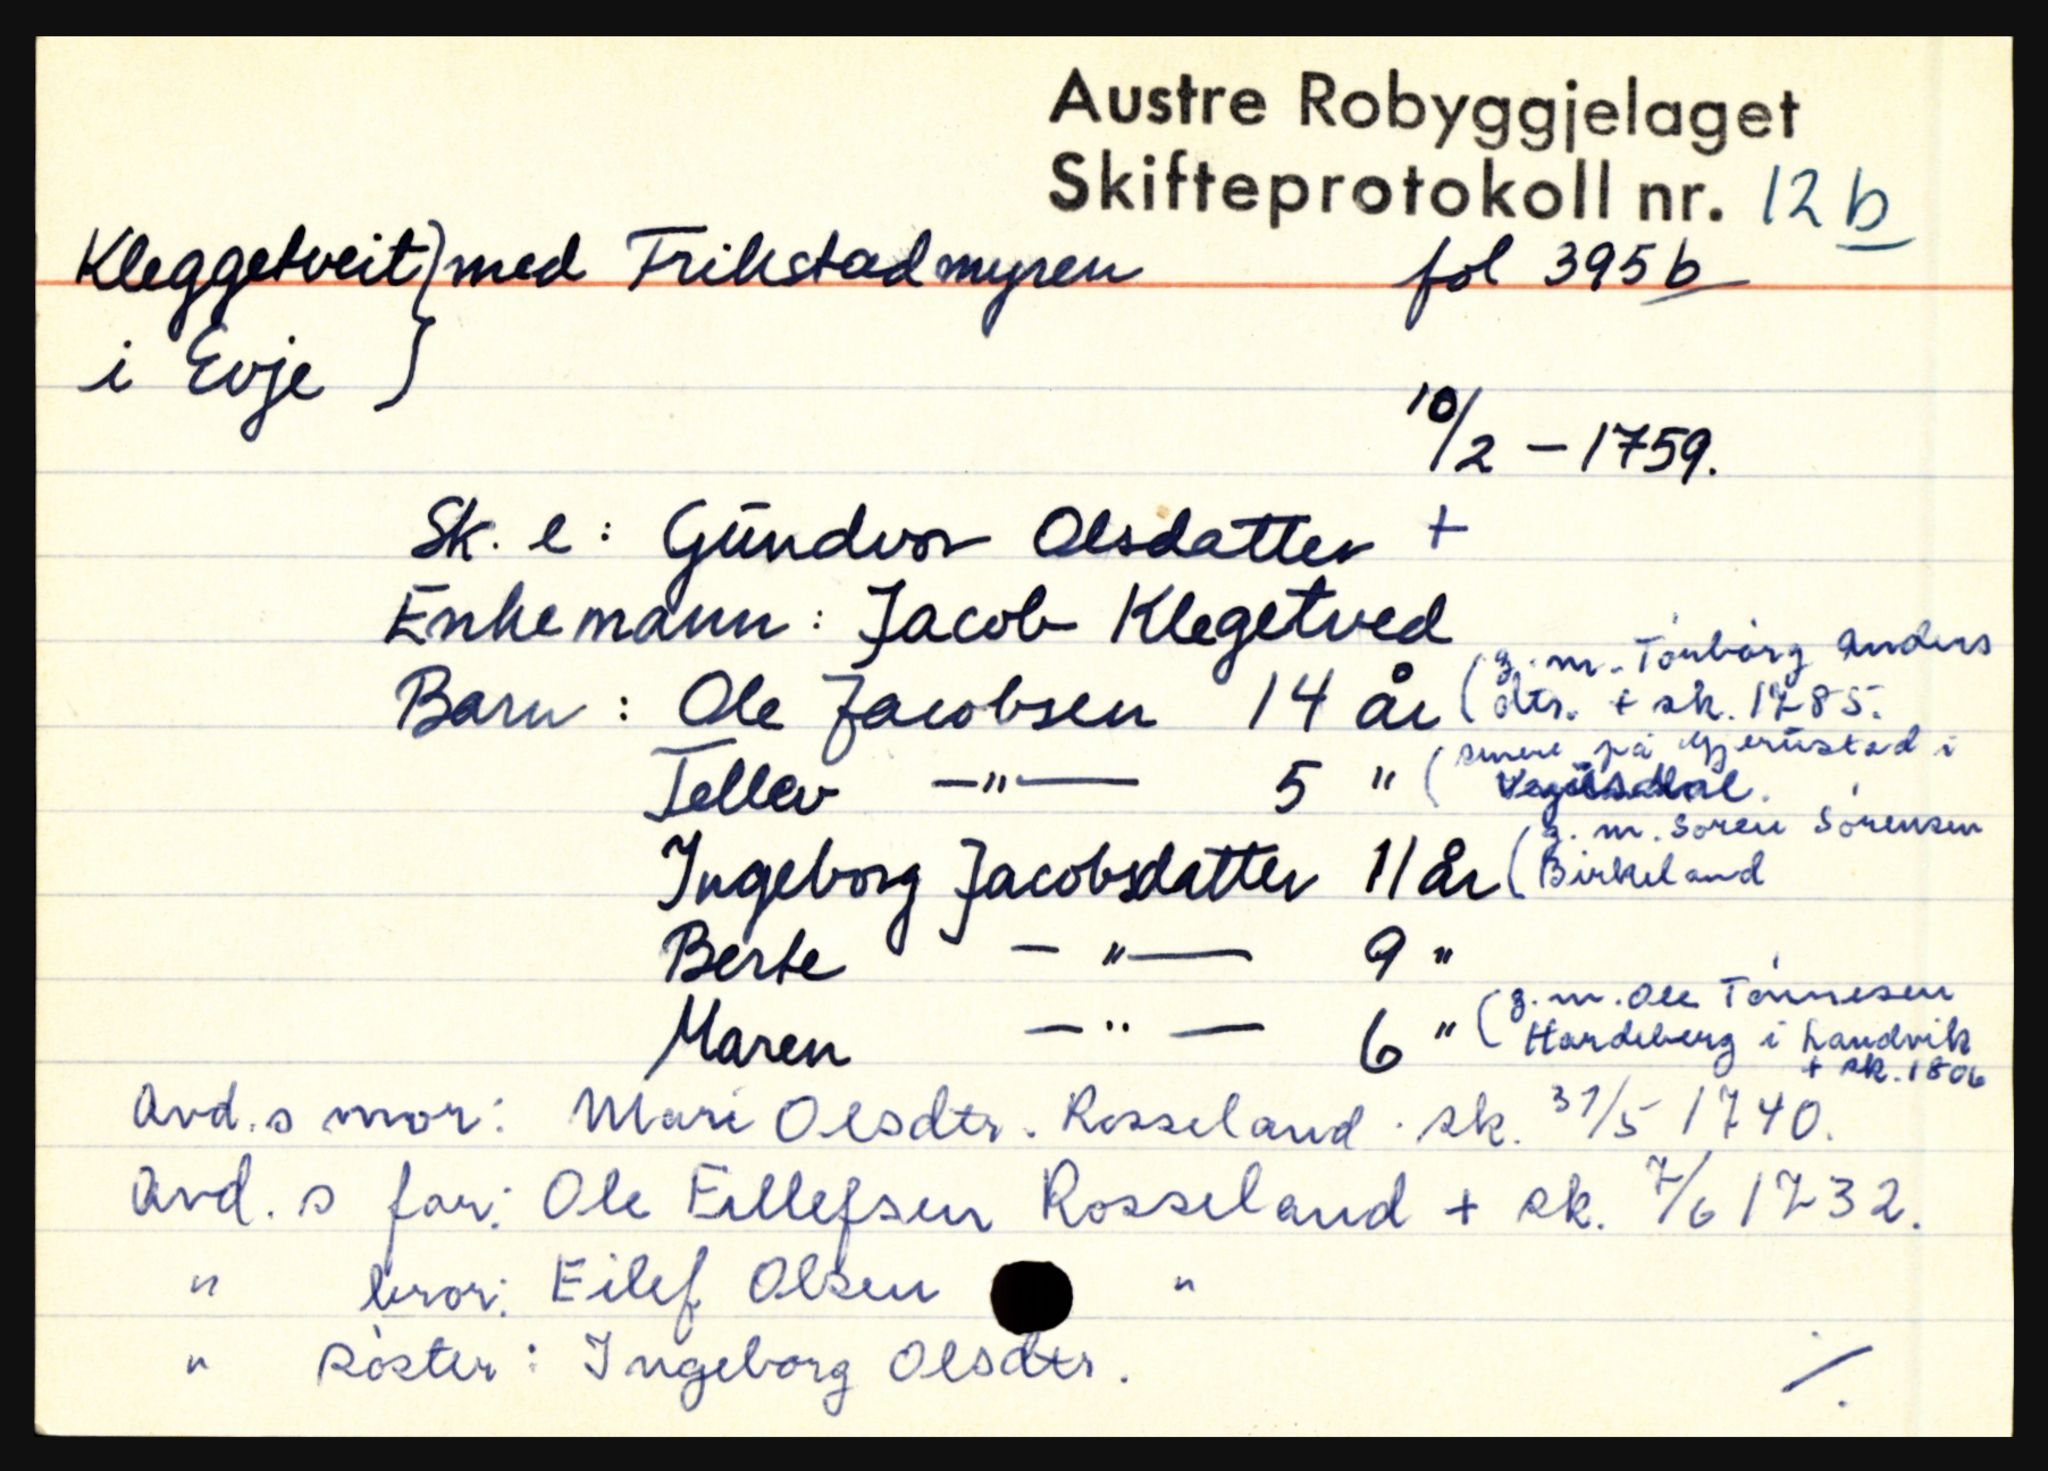 Austre Robyggjelaget
Skifteprotokoll nr. 12 b
Kleggetveit } med Frikstadmyren fol 395 b
i Evje }
10/2 - 1759.
Sk. e: Gŭndvor Olsdatter +
Enkemann: Jacob Klegetved
Barn: Ole Jacobsen 14 år (g. m. Tönborg Anders
dtr. + sk. 1785.
Tellev —"— 5 " (senere på Gjerŭstad i
Vegŭsdal.
Ingeborg Jacobsdatter 11 år (g. m. Sören Sörensen
Birkeland
Berte —"— 9 "
Maren —"— 6 " (g. m. Ole Tönnesen
Hardeberg i Landvik
+ sk. 1806
Avd. s mor: Mari Olsdtr. Rosseland. sk. 31/5 1740.
Avd. s far: Ole Eillefsen Rosseland + sk. 7/6 1732.
" bror: Eilef Olsen "
" söster: Ingeborg Olsdtr.
./.